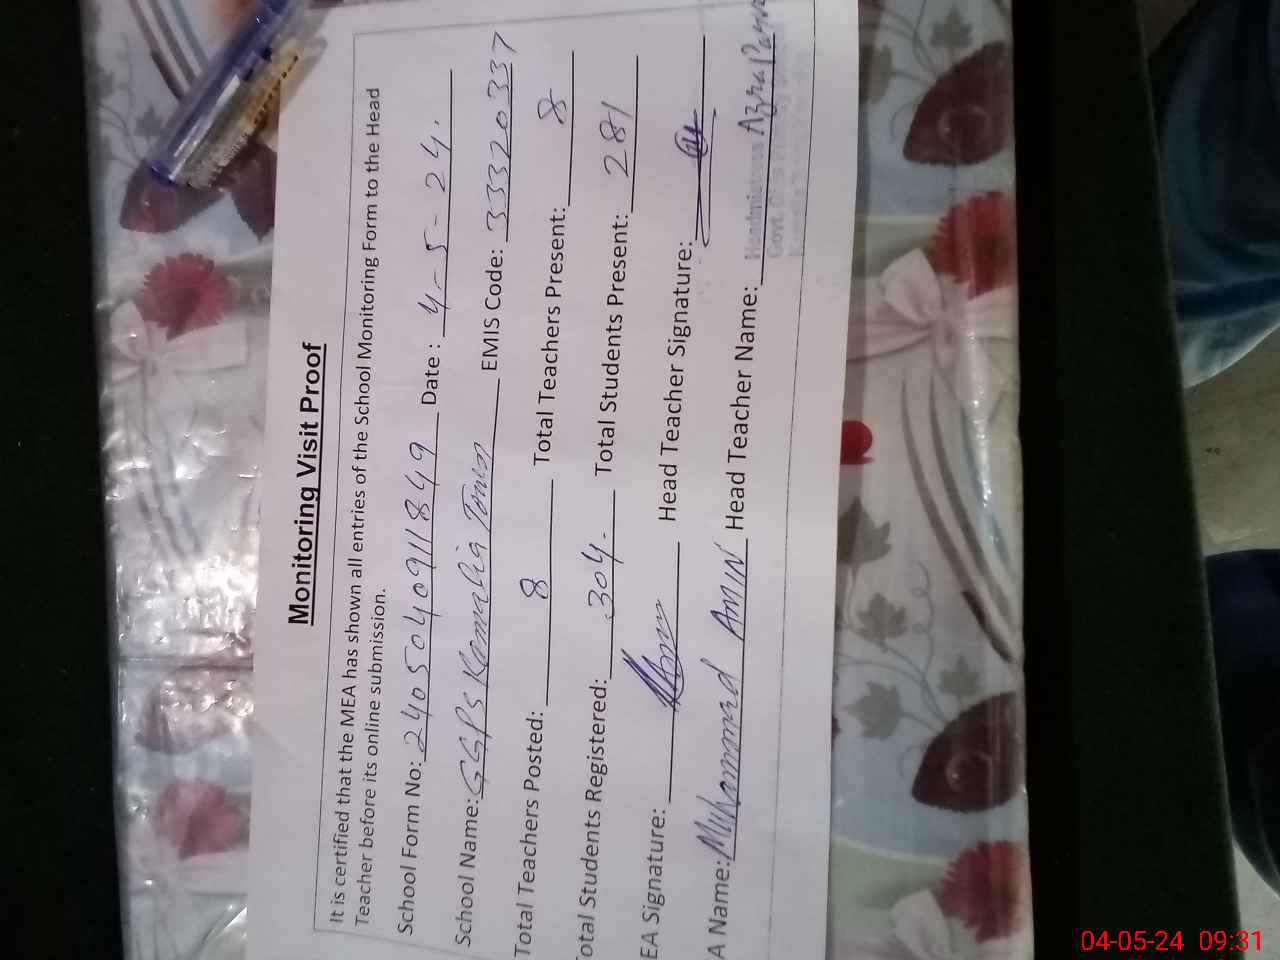 Monitoring Visit Proof
It is certified that the MEA has shown all entries of the School Monitoring Form to the Head
Teacher before its online submission.
School Form No: 2405040911849 Date : 4-5-24.
School Name: GGPS Kamalia Town EMIS Code: 33320337
Total Teachers Posted: 8 Total Teachers Present: 8
otal Students Registered: 304. Total Students Present: 281
EA Signature: Head Teacher Signature:
A Name: Muhammad AMIN Head Teacher Name: Azra Parv
Headmistress
Govt.
04-05-24 09:31